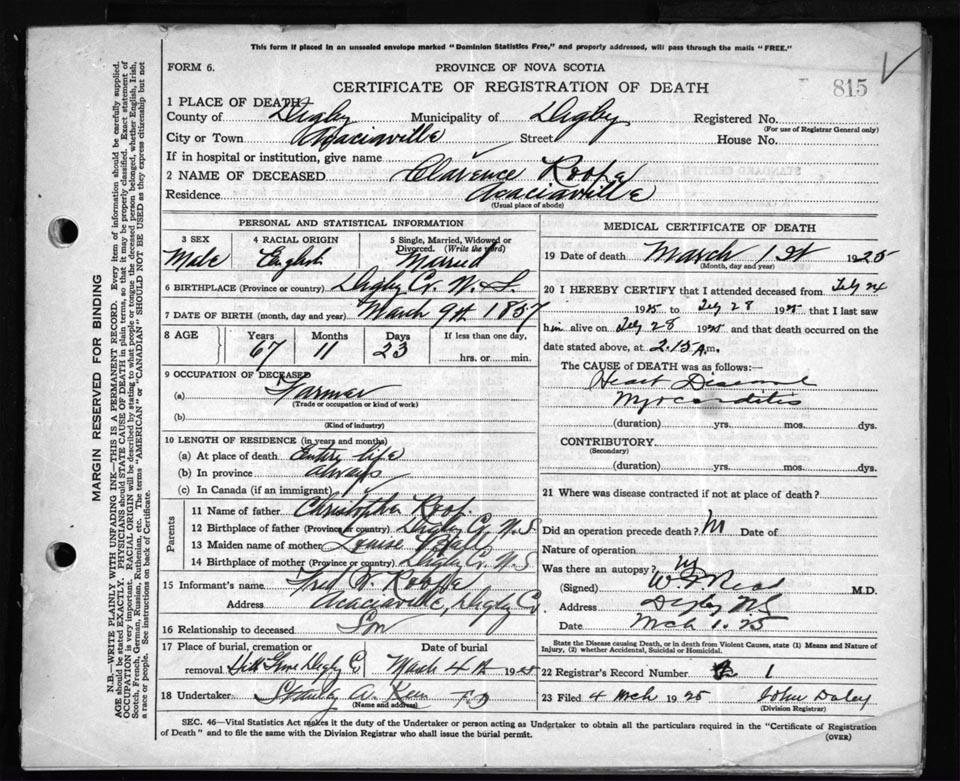 This form if placed in an unsealed envelope marked "Dominion Statistics Free," and properly addressed, will pass through the mails "FREE."
FORM 6.
PROVINCE OF NOVA SCOTIA
CERTIFICATE OF REGISTRATION OF DEATH
815
1 PLACE OF DEATH
County of Digby Municipality of Digby Registered No.
(For use of Registrar General only)
City or Town Acaciaville Street House No.
If in hospital or institution, give name
2 NAME OF DECEASED Clarence Roope
Residence Acaciaville
(Usual place of abode)
PERSONAL AND STATISTICAL INFORMATION
3 SEX 4 RACIAL ORIGIN 5 Single, Married, Widowed or Divorced. (Write the word)
Male English Married
6 BIRTHPLACE (Province or country) Digby Co. N.S.
7 DATE OF BIRTH (month, day and year) March 9th 1857
8 AGE Years Months Days If less than one day,
67 11 23 hrs. or min.
9 OCCUPATION OF DECEASED
(a) Farmer
(Trade or occupation or kind of work)
(b)
(Kind of industry)
10 LENGTH OF RESIDENCE (in years and months)
(a) At place of death Entire life
(b) In province always
(c) In Canada (if an immigrant)
Parents
11 Name of father Christopher Roop.
12 Birthplace of father (Province or country) Digby Co. N.S.
13 Maiden name of mother Louise
14 Birthplace of mother (Province or country) Digby Co. N.S.
15 Informant's name Fred W. Roope
Address Acaciaville, Digby Co.
16 Relationship to deceased Son
17 Place of burial, cremation or Date of burial
removal Hill Grove Digby C. March 4th 1925
18 Undertaker Stanley A.
(Name and address)
MEDICAL CERTIFICATE OF DEATH
19 Date of death March 1st 1925
(Month, day and year)
20 I HEREBY CERTIFY that I attended deceased from Feby 24
1925 to Feby 28 1925 that I last saw
him alive on Feby 28 1925 and that death occurred on the
date stated above, at 2.15 A.m.
The CAUSE of DEATH was as follows:
Heart Disease
Myocarditis
(duration) yrs. mos. dys.
CONTRIBUTORY
(Secondary)
(duration) yrs. mos. dys.
21 Where was disease contracted if not at place of death?
Did an operation precede death? Date of
Nature of operation
Was there an autopsy?
(Signed) M.D.
Address Digby NS
Date Mch 1. 25
State the Disease causing Death, or in death from Violent Causes, state (1) Means and Nature of
Injury, (2) whether Accidental, Suicidal or Homicidal.
22 Registrar's Record Number 1
23 Filed 4 Mch 1925 John Daley
(Division Registrar)
SEC. 46—Vital Statistics Act makes it the duty of the Undertaker or person acting as Undertaker to obtain all the particulars required in the "Certificate of Registration
of Death" and to file the same with the Division Registrar who shall issue the burial permit.
(OVER)
MARGIN RESERVED FOR BINDING
N.B.—WRITE PLAINLY WITH UNFADING INK—THIS IS A PERMANENT RECORD. Every item of information should be carefully supplied.
AGE should be stated EXACTLY. PHYSICIANS should STATE CAUSE OF DEATH in plain terms, so that it may be properly classified. Exact statement of
OCCUPATION is very important. RACIAL ORIGIN will be described by stating to what people or tongue the deceased person belonged, whether English, Irish,
Scotch, French, German, Russian, Ruthenian, etc. The terms "AMERICAN" or "CANADIAN" SHOULD NOT BE USED as they express citizenship but not
a race or people. See instructions on back of Certificate.